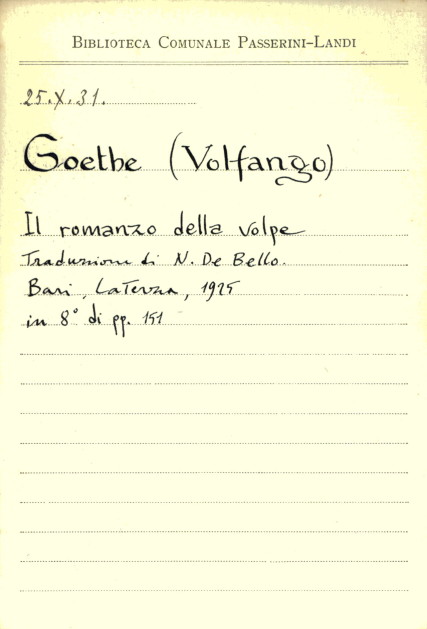 BIBLIOTECA COMUNALE PASSERINI-LANDI
25.X.31.
Goethe (Volfango)
Il romanzo della volpe
Traduzione di N. De Bello.
Bari, Laterza, 1925
in 8° di pp. 151